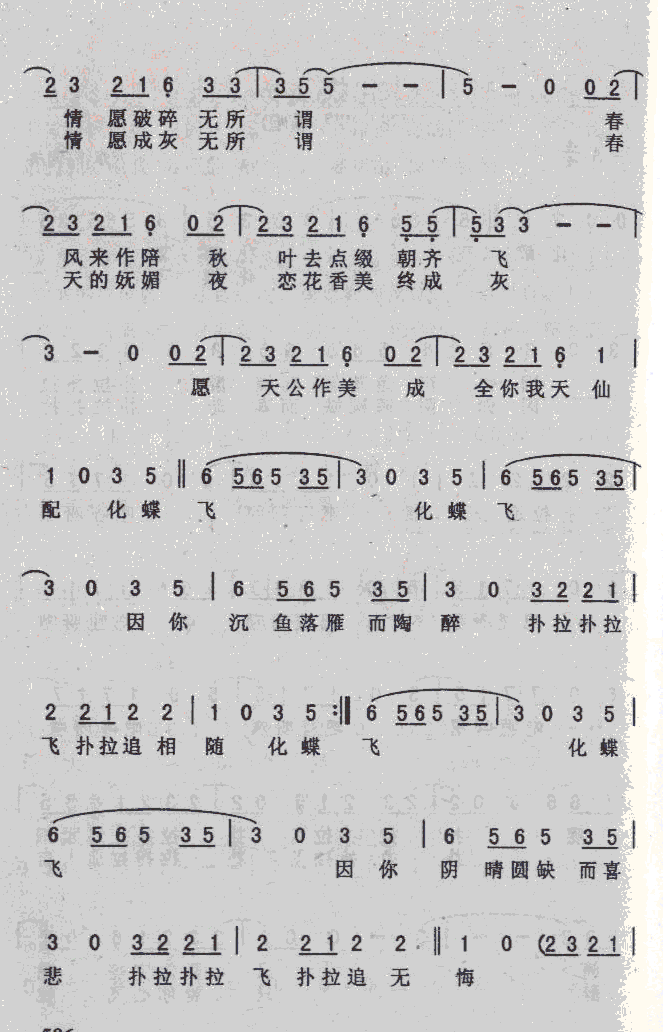 2 3 2 1 6 3 3 | 3 5 5 - - | 5 - 0 0 2 |
情 愿破碎 无所 谓 春
情 愿成灰 无所 谓 春
2 3 2 1 6 0 2 | 2 3 2 1 6 5 5 | 5 3 3 - - |
风来作陪 秋 叶去点缀 朝齐 飞
天的妩媚 夜 恋花香美 终成 灰
3 - 0 0 2 | 2 3 2 1 6 0 2 | 2 3 2 1 6 1 |
愿 天公作美 成 全你我天 仙
1 0 3 5 || 6 5 6 5 3 5 | 3 0 3 5 | 6 5 6 5 3 5 |
配 化 蝶 飞 化 蝶 飞
3 0 3 5 | 6 5 6 5 3 5 | 3 0 3 2 2 1 |
因 你 沉 鱼落雁 而陶 醉 扑拉扑拉
2 2 1 2 2 | 1 0 3 5 :|| 6 5 6 5 3 5 | 3 0 3 5 |
飞 扑拉追 相 随 化 蝶 飞 化 蝶
6 5 6 5 3 5 | 3 0 3 5 | 6 5 6 5 3 5 |
飞 因 你 阴 晴圆缺 而喜
3 0 3 2 2 1 | 2 2 1 2 2 || 1 0 (2 3 2 1 |
悲 扑拉扑拉 飞 扑拉追 无 悔